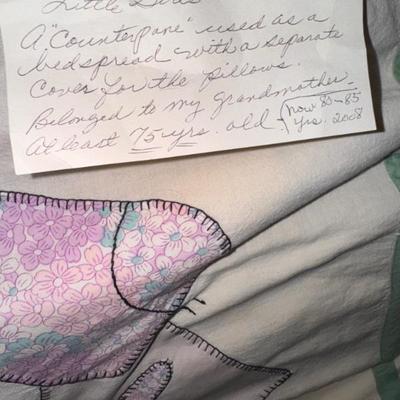 Little Girls
A "Counterpane" used as a
bedspread with a separate
cover for the pillows.
Belonged to my grandmother.
At least 75 yrs. old. (now 80-85
yrs. 2008